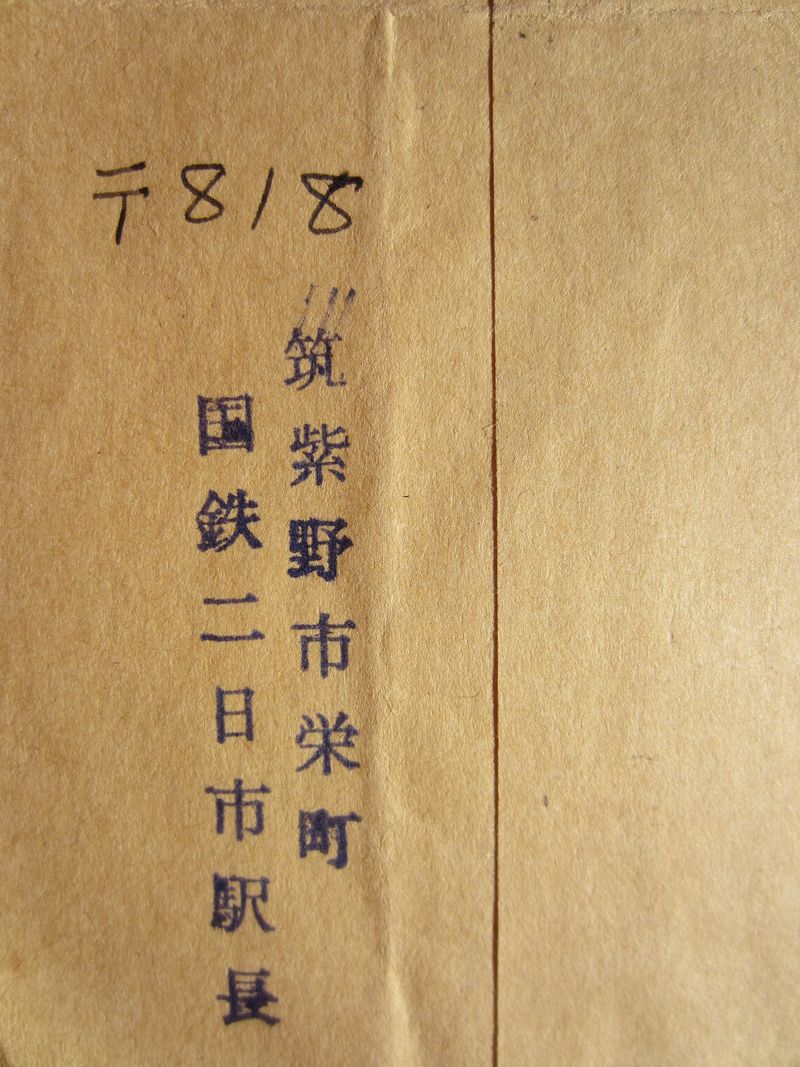 〒818
筑紫野市栄町
国鉄二日市駅長